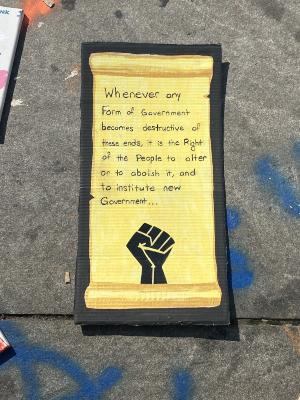 Whenever any
Form of Government
becomes destructive of
these ends, it is the Right
of the People to alter
or to abolish it, and
to institute new
Government...